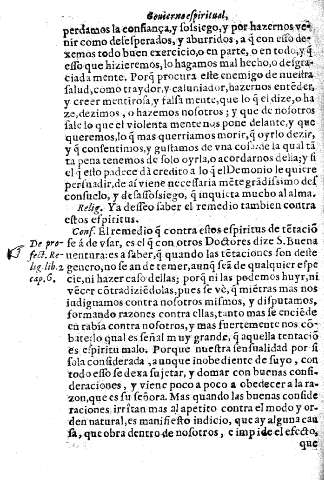 Govierno espiritual,
perdamos la confiança, y sossiego, y por hazernos ve-
nir como desesperados, y aburridos, a q̃ con esso de-
xemos todo buen exercicio, o en parte, o en todo, y q̃
esso que hizieremos, lo hagamos mal hecho, o desgra-
ciadamente. Porq̃ procura este enemigo de nuestra
salud, como traydor, y caluniador, hazernos entẽder,
y creer mentirosa, y falsamente, que lo q̃ el dize, o ha
ze, dezimos, o hazemos nosotros; y que de nosotros
sale lo que el violentamente nos pone delante, y que
queremos, lo q̃ mas querriamos morir, q̃ oyrlo dezir,
y q̃ consentimos, y gustamos de vna cosa de la qual tã
ta pena tenemos de solo oyrla, o acordarnos della; y si
el q̃ esto padece dà credito a lo q̃ el Demonio le quiere
persuadir, de aì viene necessariamẽte grãdissimo des
consuelo, y desassossiego, q̃ inquieta mucho al alma.
Relig. Ya desseo saber el remedio tambien contra
estos espiritus.
Conf. El remedio q̃ contra estos espiritus de tẽtaciõ
se à de vsar, es el q̃ con otros Doctores dize S. Buena
uentura: es a saber, q̃ quando las tẽtaciones son deste
genero, no se an de temer, aunq̃ seã de qualquier espe
cie, ni hazer caso dellas; porq̃ ni las podemos huyr, ni
vẽcer cõtradiziẽdolas, pues se vè, q̃ miẽtras mas nos
indignamos contra nosotros mismos, y disputamos,
formando razones contra ellas, tanto mas se enciẽde
en rabia contra nosotros, y mas fuertemente nos cõ-
bate: lo qual es señal muy grande, q̃ aquella tentaciõ
es espiritu malo. Porque nuestra sensualidad por si
sola considerada, aunque inobediente de suyo, con
todo esso se dexa sujetar, y domar con buenas consi-
deraciones, y viene poco a poco a obedecer a la ra-
zon, que es su señora. Mas quando las buenas conside
raciones irritan mas al apetito contra el modo y or-
den natural, es manifiesto indicio, que ay alguna cau
sa, que obra dentro de nosotros, e impide el efecto,
que
De pro-
fect. Re-
lig. lib. 2
cap. 6.